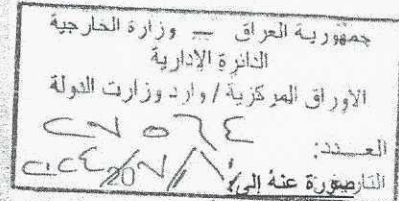 جمهورية العراق — وزارة الخارجية
الدائرة الإدارية
الاوراق المركزية / وارد وزارت الدولة
العـــدد: ٢٧٥٦٤
صورة عنه إلى/